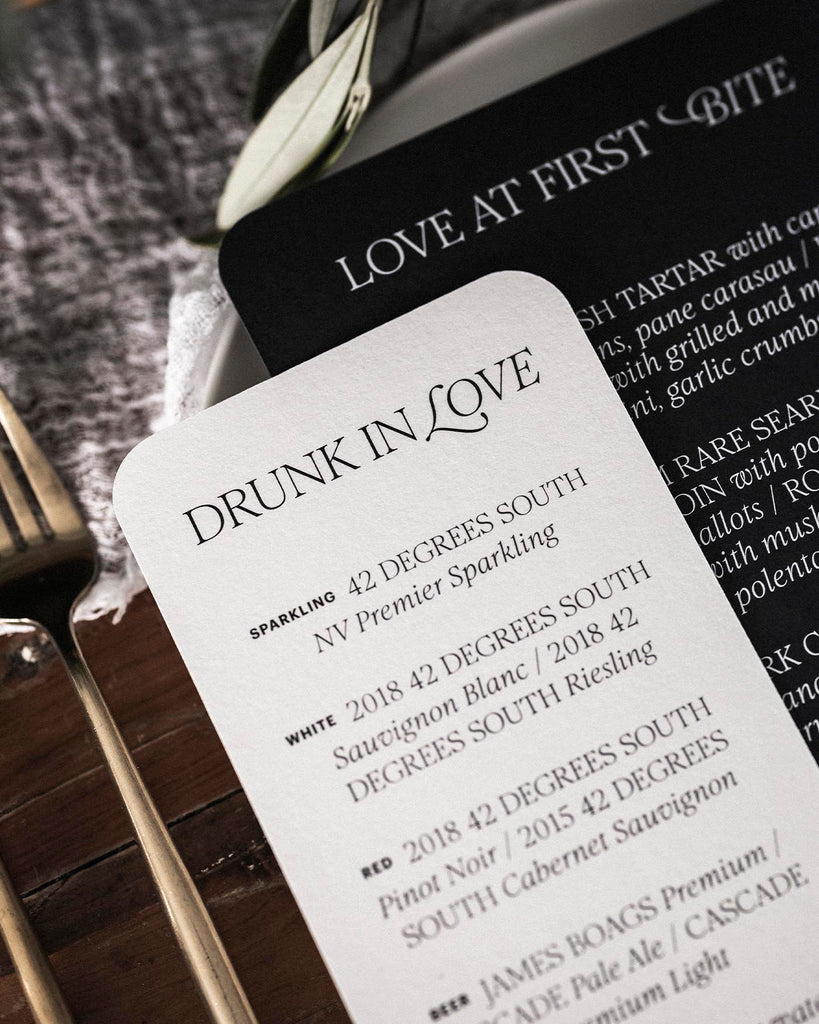 LOVE AT FIRST BITE
TARTAR with
pane carasau /
with grilled and
garlic
RARE
with
/
with
polenta
DRUNK IN LOVE
SPARKLING 42 DEGREES SOUTH
NV Premier Sparkling
WHITE 2018 42 DEGREES SOUTH
Sauvignon Blanc / 2018 42
DEGREES SOUTH Riesling
RED 2018 42 DEGREES SOUTH
Pinot Noir / 2015 42 DEGREES
SOUTH Cabernet Sauvignon
BEER JAMES BOAGS Premium /
Pale Ale / CASCADE
Light